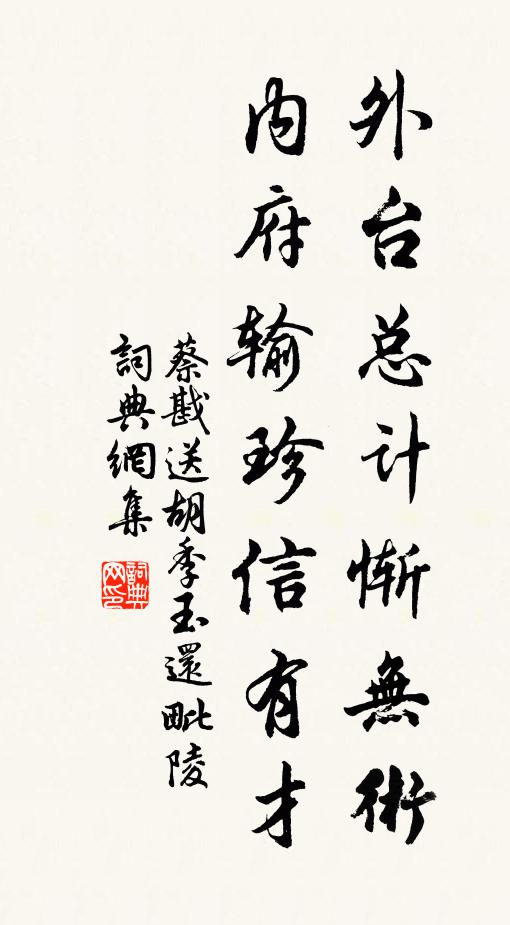 外台总计惭無術
内府输珍信有才
蔡戡送胡季玉還毗陵
詞典網集
詞典网印